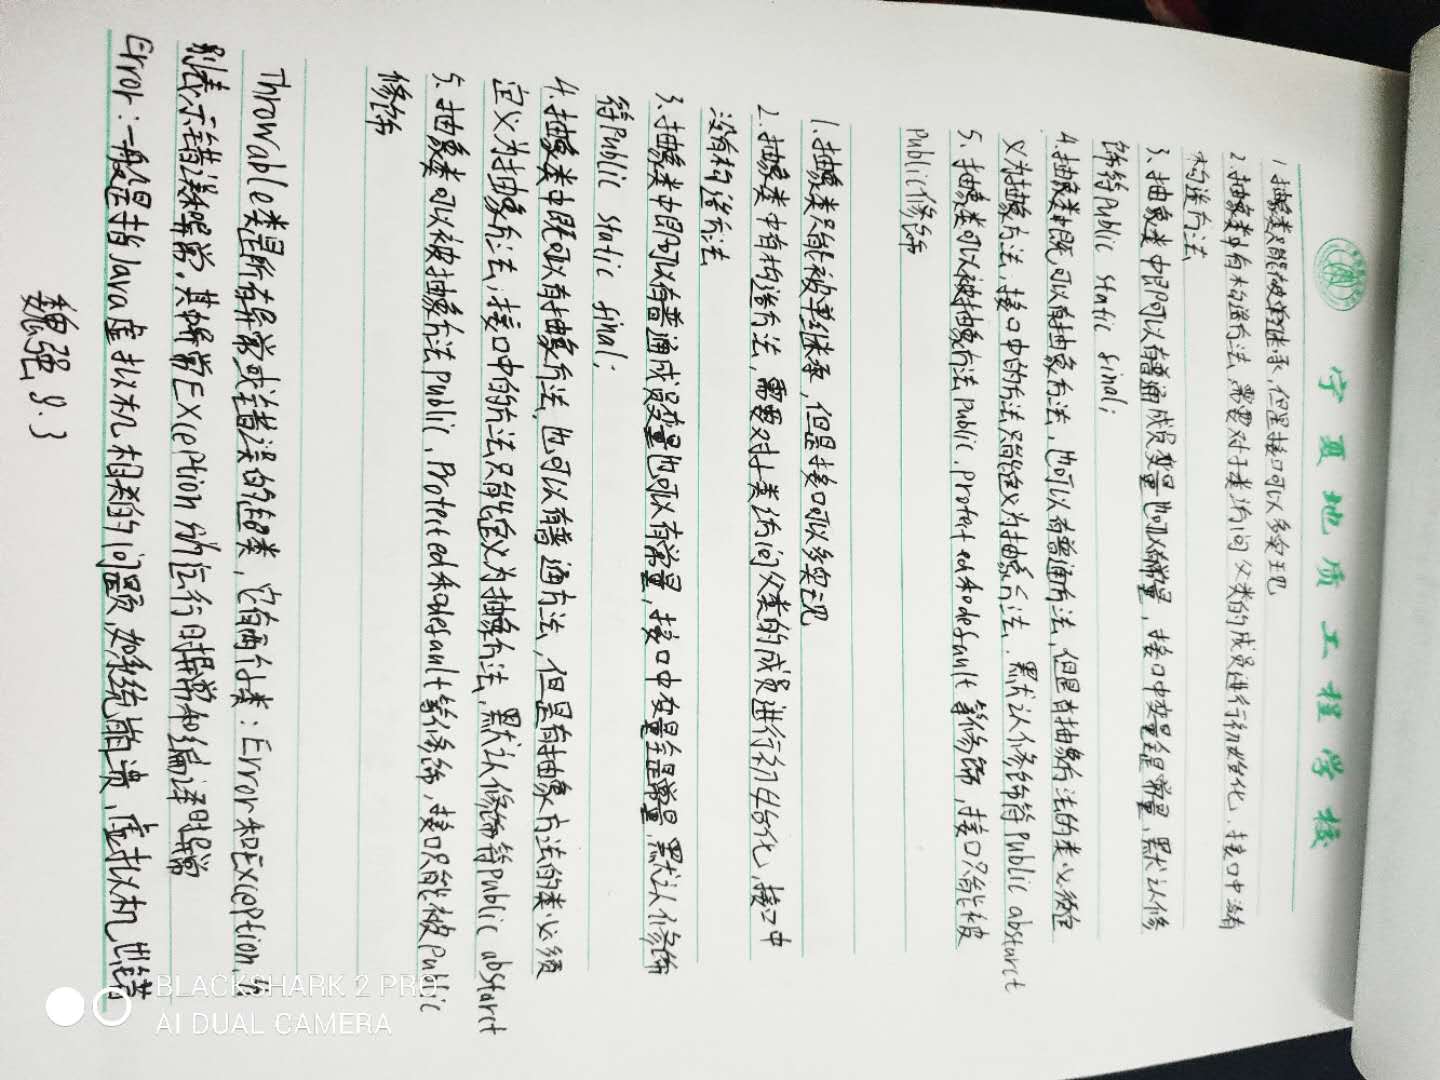 宁夏地质工程学校
1.抽象类只能被单继承,但是接口可以多实现
2.抽象类中有构造方法,需要对子类访问父类的成员进行初始化,接口中没有
构造方法
3.抽象类中即可以有普通成员变量也可以有常量,接口中变量全是常量,黑犬认修
饰符public static final;
4.抽象类中既可以有抽象方法,也可以有普通方法,但是有抽象方法的类必须定
义为抽象方法,接口中的方法只能定义为抽象方法.黑犬认修饰符public absturct
5.抽象类可以被抽象方法public,protected和default等修饰,接口只能被
public修饰
1.抽象类只能被单继承,但是接口可以多实现
2.抽象类中有构造方法,需要对子类访问父类的成员进行初始化,接口中
没有构造方法
3.抽象类中即可以有普通成员变量也可以有常量,接口中变量全是常量,黑犬认修饰
符public static final;
4.抽象类中既可以有抽象方法,也可以有普通方法,但是有抽象方法的类必须
定义为抽象方法,接口中的方法只能定义为抽象方法,黑犬认修饰符public absturct
5.抽象类可以被抽象方法public,Protected和default等修饰,接口只能被public
修饰
Throwable类是所有异常或错误的超类,它有两个子类:Error和Exception,分
别表示错误和异常.其中异常Exception分为运行时异常和编译时异常
Error:一般是指Java虚拟机相关的问题,如系统崩溃,虚拟机出错
魏强 9.3
BLACKSHARK 2 PRO
AI DUAL CAMERA